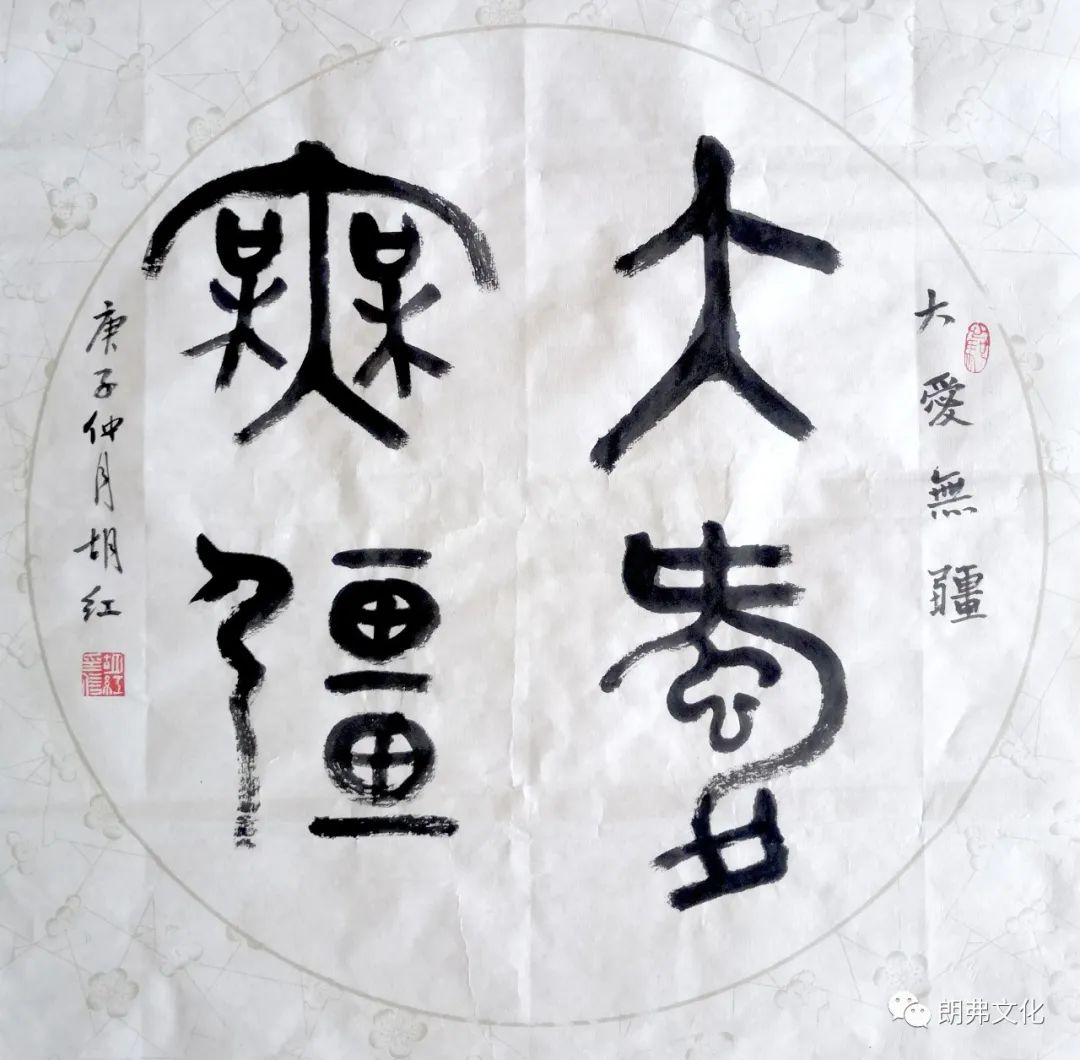 大愛無疆
大愛
無疆
庚子仲月胡红
胡紅
朗弗文化